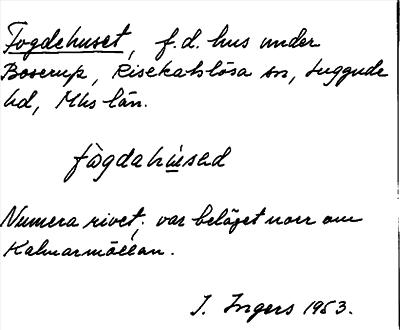 Fogdehuset, f.d. hus under
Boserup, Risekatslösa sn, Luggude
hd, Mhs län.
fògdahúsed
Numera rivet; var beläget norr om
Kalmarmöllan.
I. Ingers 1953.